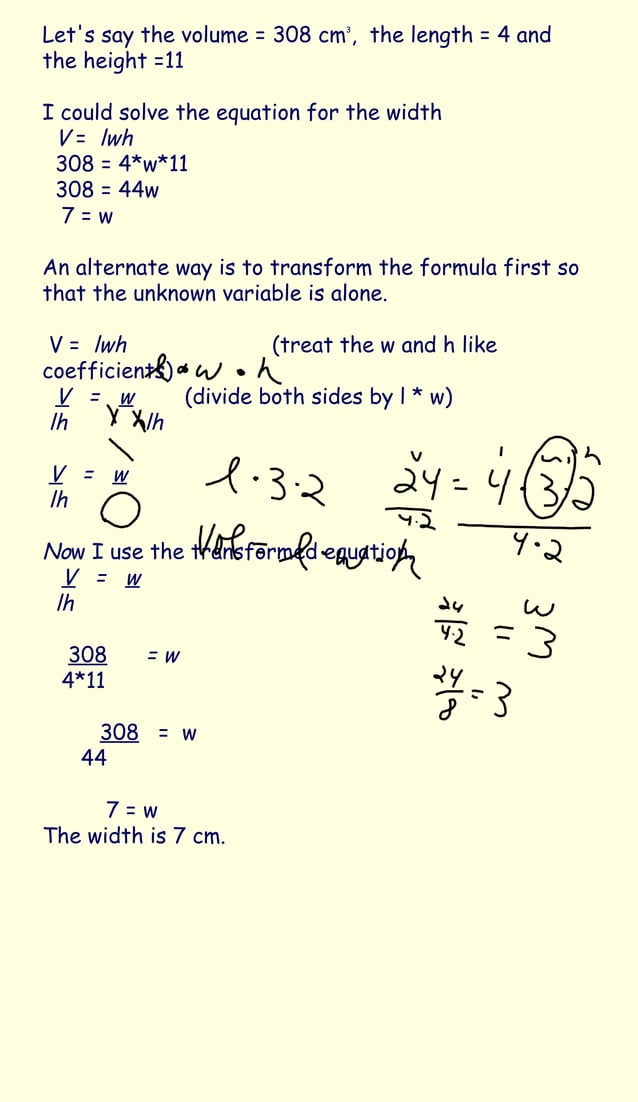 Let's say the volume = 308 cm³, the length = 4 and
the height =11
I could solve the equation for the width
V= lwh
308 = 4*w*11
308 = 44w
7 = w
An alternate way is to transform the formula first so
that the unknown variable is alone.
V = lwh (treat the w and h like
coefficients) w • h
V = w (divide both sides by l * w)
lh lh
V = w
lh
l · 3 · 2
V l w h
24 = 4 (3) 2
4·2 4·2
Now I use the transformed equation
Vol = l · w · h
V = w
lh
24 w
4·2 = 3
24
8 = 3
308 = w
4*11
308 = w
44
7 = w
The width is 7 cm.